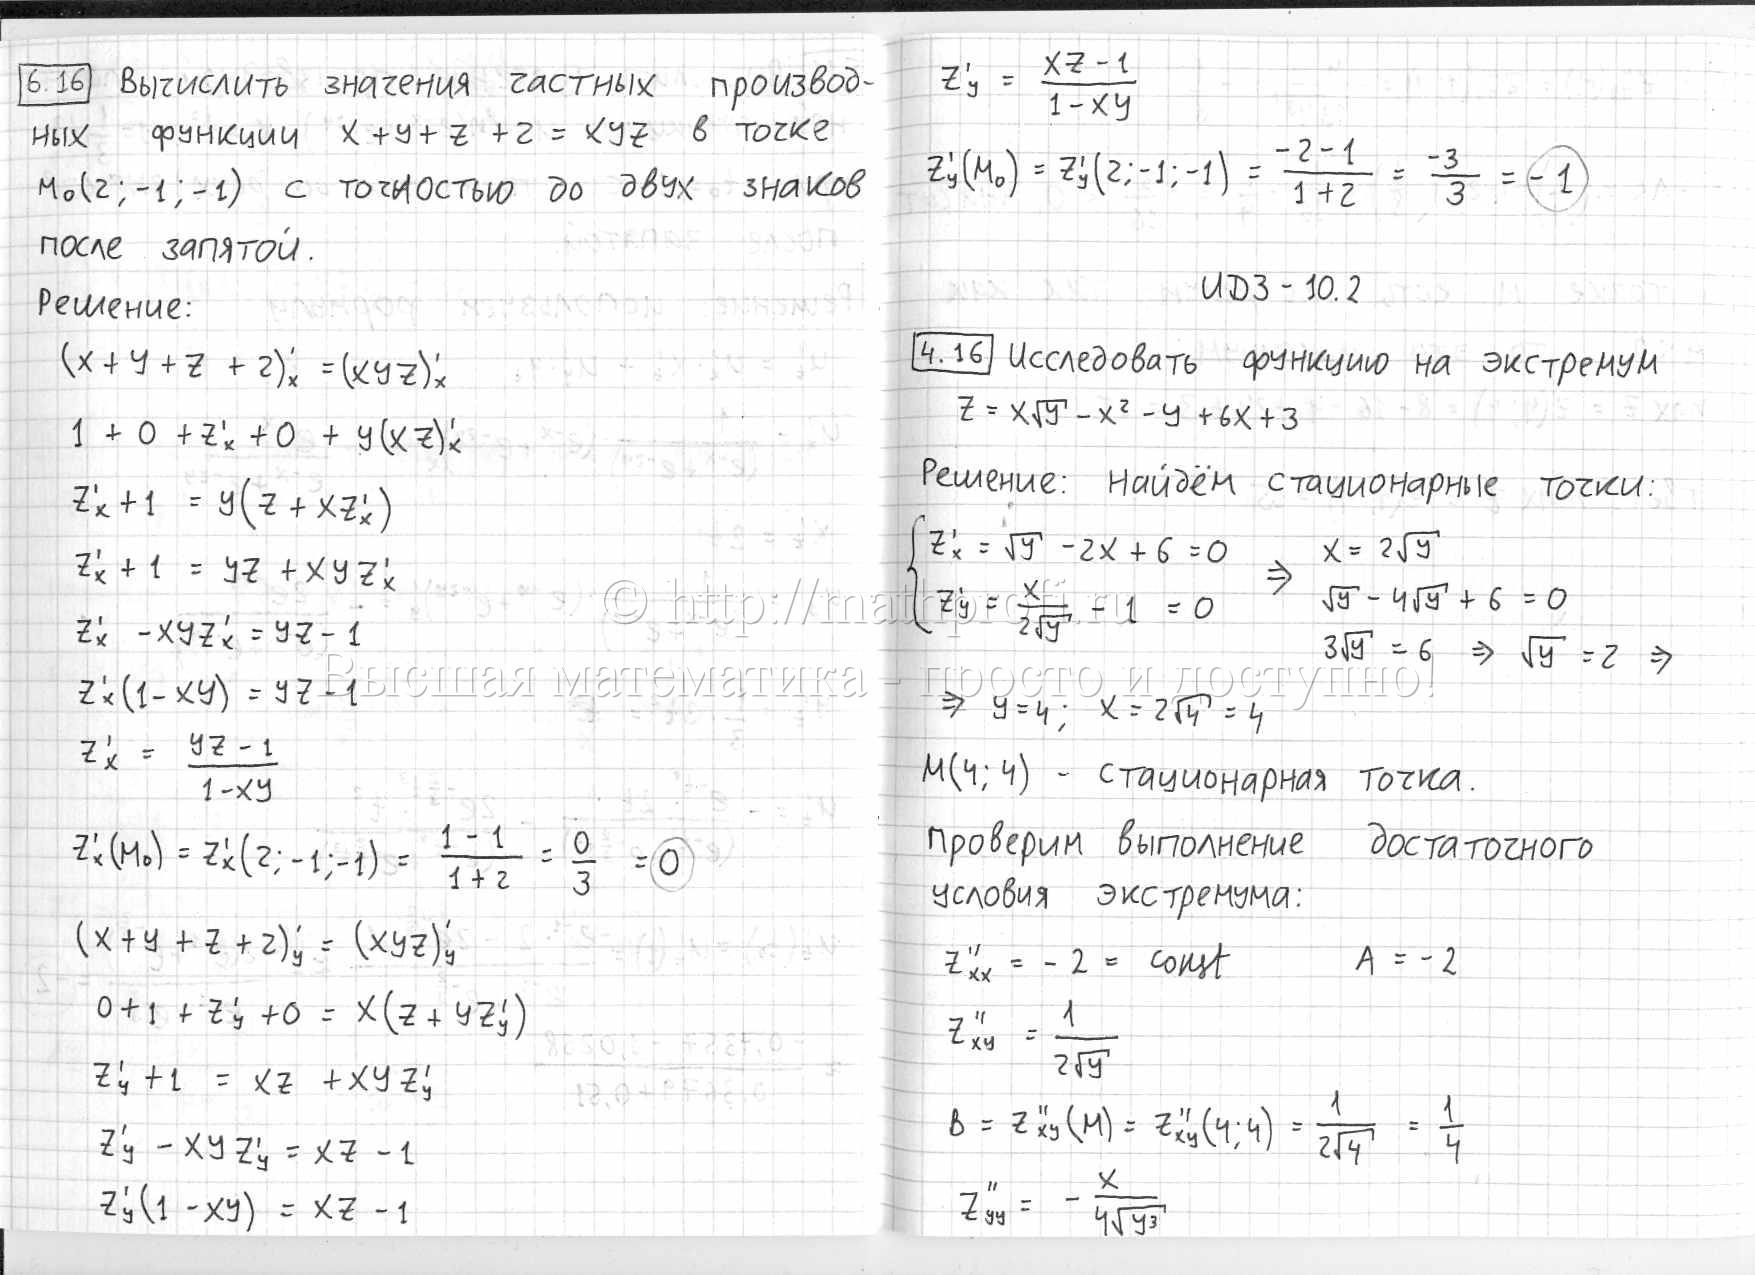 6.16 Вычислить значения частных производ-
ных функции x + y + z + 2 = xyz в точке
M₀(2; -1; -1) с точностью до двух знаков
после запятой.
Решение:
(x + y + z + 2)'ₓ = (xyz)'ₓ
1 + 0 + z'ₓ + 0 + y(xz)'ₓ
z'ₓ + 1 = y(z + xz'ₓ)
z'ₓ + 1 = yz + xyz'ₓ
z'ₓ - xyz'ₓ = yz - 1
z'ₓ(1 - xy) = yz - 1
z'ₓ = (yz - 1)/(1 - xy)
z'ₓ(M₀) = z'ₓ(2; -1; -1) = (1 - 1)/(1 + 2) = 0/3 = 0
(x + y + z + 2)'_y = (xyz)'_y
0 + 1 + z'_y + 0 = x(z + yz'_y)
z'_y + 1 = xz + xyz'_y
z'_y - xyz'_y = xz - 1
z'_y(1 - xy) = xz - 1
z'_y = (xz - 1)/(1 - xy)
z'_y(M₀) = z'_y(2; -1; -1) = (-2 - 1)/(1 + 2) = -3/3 = -1
ИДЗ - 10.2
4.16 Исследовать функцию на экстремум
z = x√y - x² - y + 6x + 3
Решение: Найдём стационарные точки:
{ z'ₓ = √y - 2x + 6 = 0
z'_y = x/(2√y) - 1 = 0
⇒ x = 2√y
√y - 4√y + 6 = 0
3√y = 6 ⇒ √y = 2 ⇒
⇒ y = 4; x = 2√4 = 4
M(4; 4) - стационарная точка.
Проверим выполнение достаточного
условия экстремума:
z''ₓₓ = -2 = const A = -2
z''_xy = 1/(2√y)
B = z''_xy(M) = z''_xy(4; 4) = 1/(2√4) = 1/4
z''_yy = - x/(4√y³)
© http://mathprofi.ru
Высшая математика - просто и доступно!